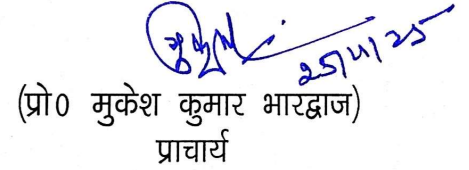 25/11/25
(प्रो0 मुकेश कुमार भारद्वाज)
प्राचार्य